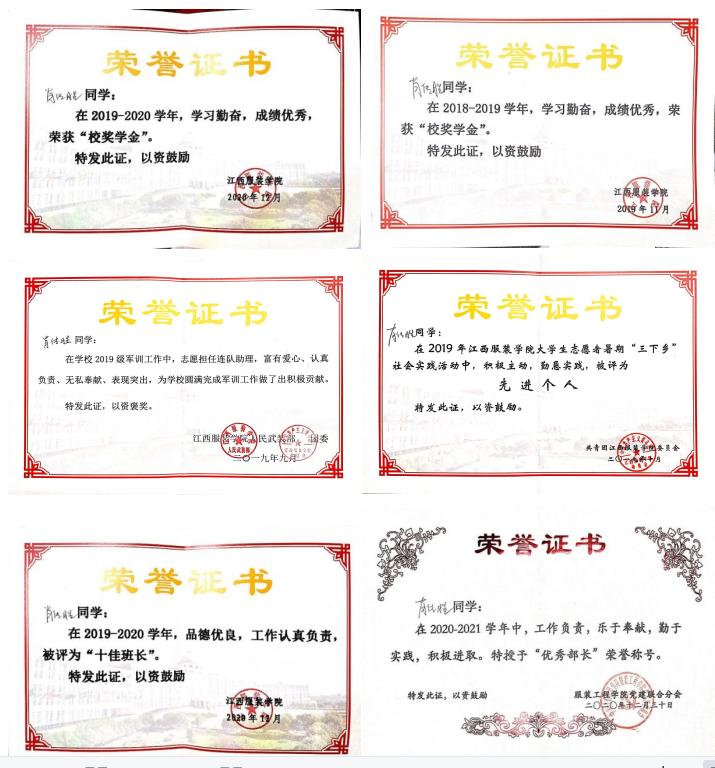 荣誉证书
同学：
在2019-2020学年，学习勤奋，成绩优秀，
荣获“校奖学金”。
特发此证，以资鼓励
江西服装学院
2020年12月
荣誉证书
同学：
在2018-2019学年，学习勤奋，成绩优秀，荣
获“校奖学金”。
特发此证，以资鼓励
江西服装学院
2019年11月
荣誉证书
同学：
在学校2019级军训工作中，志愿担任连队助理，富有爱心、认真
负责、无私奉献、表现突出，为学校圆满完成军训工作做了出积极贡献。
特发此证，以资褒奖。
江西服装学院人民武装部、团委
人民武装部
二〇一九年九月
荣誉证书
同学：
在2019年江西服装学院大学生志愿者暑期“三下乡”
社会实践活动中，积极主动，勤恳实践，被评为
先进个人
特发此证，以资鼓励。
共青团江西服装学院委员会
荣誉证书
同学：
在2019-2020学年，品德优良，工作认真负责，
被评为“十佳班长”。
特发此证，以资鼓励
江西服装学院
2020年12月
荣誉证书
同学：
在2020-2021学年中，工作负责，乐于奉献，勤于
实践，积极进取。特授予“优秀部长”荣誉称号。
特发此证，以资鼓励
服装工程学院党建联合分会
二〇二〇年十二月三十日